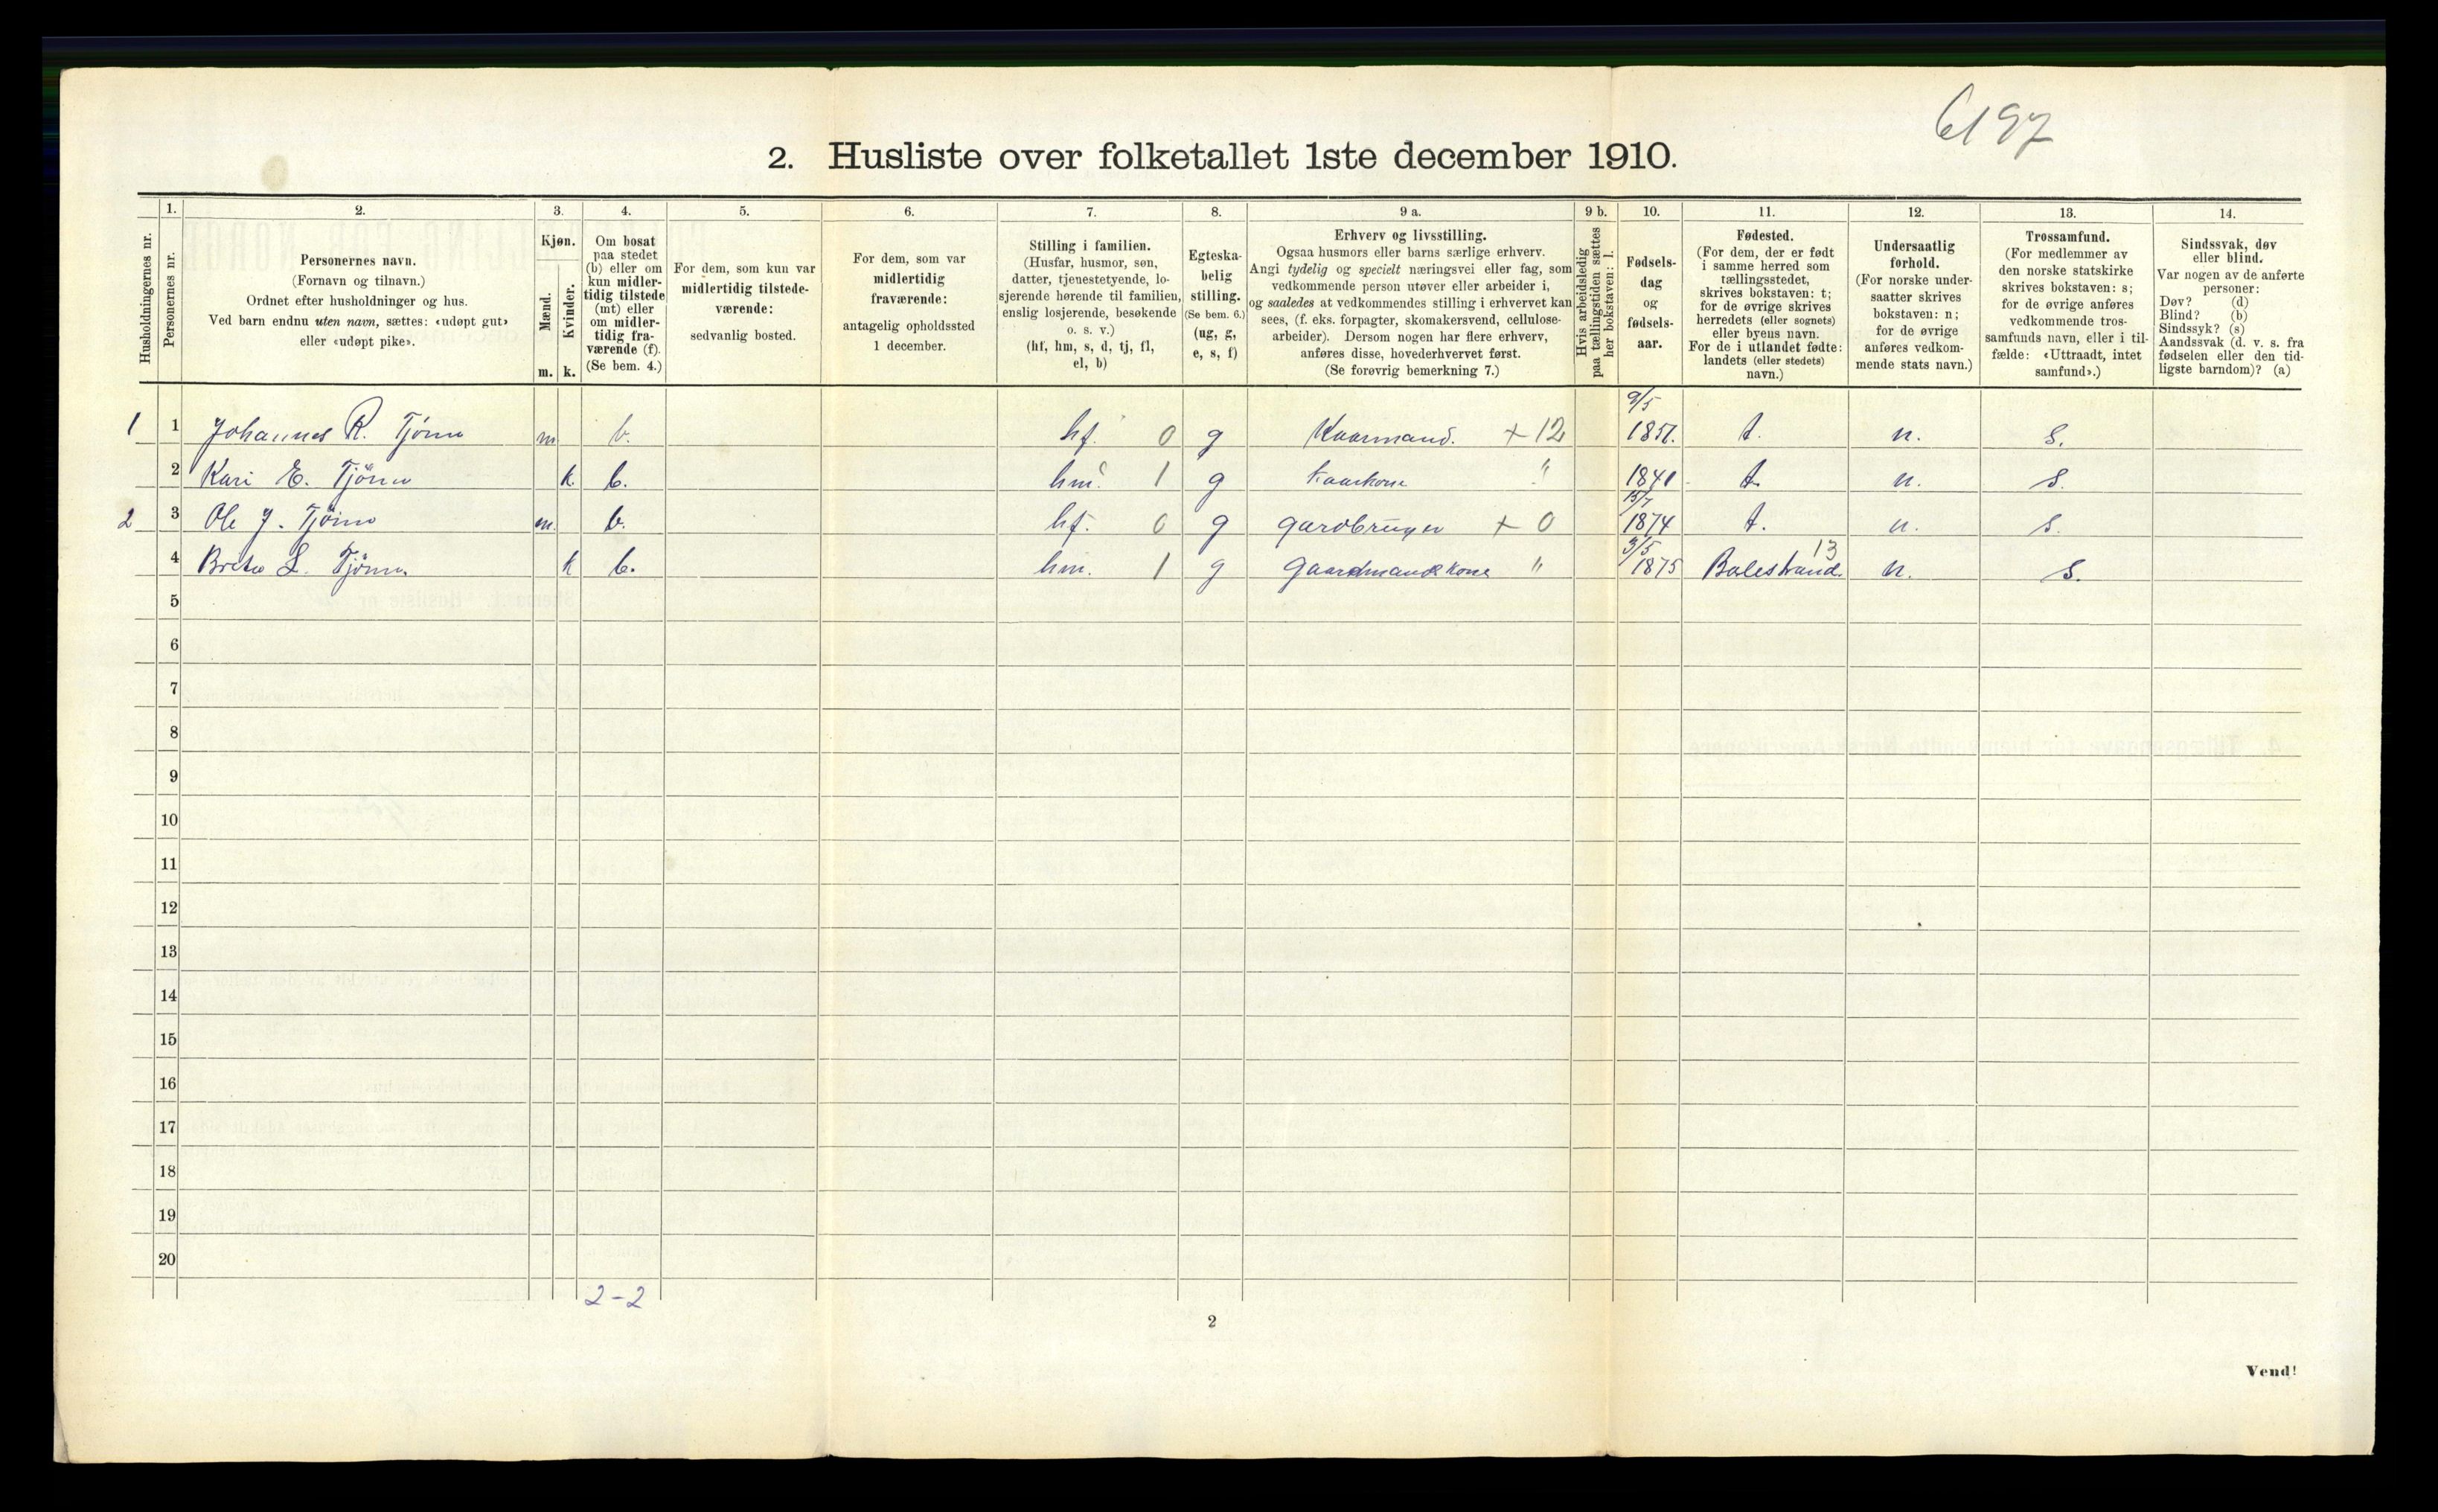 6197
2. Husliste over folketallet 1ste december 1910.
1. 2. 3. 4. 5. 6. 7. 8. 9 a. 9 b. 10. 11. 12. 13. 14.
Husholdningernes nr.
Personernes nr.
Personernes navn.
(Fornavn og tilnavn.)
Ordnet efter husholdninger og hus.
Ved barn endnu uten navn, sættes: «udøpt gut»
eller «udøpt pike».
Kjøn.
Mænd.
Kvinder.
m. k.
Om bosat
paa stedet
(b) eller om
kun midler-
tidig tilstede
(mt) eller
om midler-
tidig fra-
værende (f).
(Se bem. 4.)
For dem, som kun var
midlertidig tilstede-
værende:
sedvanlig bosted.
For dem, som var
midlertidig
fraværende:
antagelig opholdssted
1 december.
Stilling i familien.
(Husfar, husmor, søn,
datter, tjenestetyende, lo-
sjerende hørende til familien,
enslig losjerende, besøkende
o. s. v.)
(hf, hm, s, d, tj, fl,
el, b)
Egteska-
belig
stilling.
(Se bem. 6.)
(ug, g,
e, s, f)
Erhverv og livsstilling.
Ogsaa husmors eller barns særlige erhverv.
Angi tydelig og specielt næringsvei eller fag, som
vedkommende person utøver eller arbeider i,
og saaledes at vedkommendes stilling i erhvervet kan
sees, (f. eks. forpagter, skomakersvend, cellulose-
arbeider). Dersom nogen har flere erhverv,
anføres disse, hovederhvervet først.
(Se forøvrig bemerkning 7.)
Hvis arbeidsledig
paa tællingstiden sættes
her bokstaven: l.
Fødsels-
dag
og
fødsels-
aar.
Fødested.
(For dem, der er født
i samme herred som
tællingsstedet,
skrives bokstaven: t;
for de øvrige skrives
herredets (eller sognets)
eller byens navn.
For de i utlandet fødte:
landets (eller stedets)
navn.)
Undersaatlig
forhold.
(For norske under-
saatter skrives
bokstaven: n;
for de øvrige
anføres vedkom-
mende stats navn.)
Trossamfund.
(For medlemmer av
den norske statskirke
skrives bokstaven: s;
for de øvrige anføres
vedkommende tros-
samfunds navn, eller i til-
fælde: «Uttraadt, intet
samfund».)
Sindssvak, døv
eller blind.
Var nogen av de anførte
personer:
Døv? (d)
Blind? (b)
Sindssyk? (s)
Aandssvak (d. v. s. fra
fødselen eller den tid-
ligste barndom)? (a)
1 1 Johannes R. Tjönn m. b. hf. 0 g Kaarmand. + 12 9/5 t. n. s.
2 Kari E. Tjönn k. b. hm. 1 g Kaarkone " 1841 t. n. s.
2 3 Ole J. Tjönn m. b. hf. 0 g gardbruger + 0 15/7 1874 t. n. s.
4 L. Tjönn. k b. hm. 1 g Gaardmandskone " 3/5 1875 Balestrand. 13 n. s.
5
6
7
8
9
10
11
12
13
14
15
16
17
18
19
20
2-2
2
Vend!